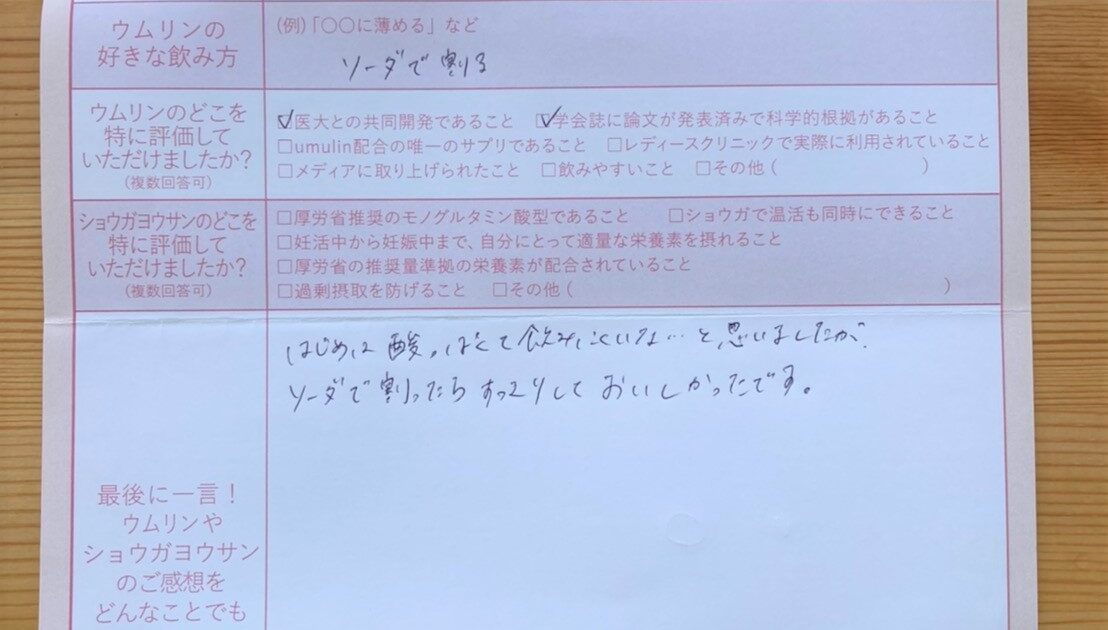 ウムリンの
好きな飲み方
(例)「〇〇に薄める」など
ソーダで割る
ウムリンのどこを
特に評価して
いただけましたか?
(複数回答可)
☑医大との共同開発であること ☑学会誌に論文が発表済みで科学的根拠があること
□umulin配合の唯一のサプリであること □レディースクリニックで実際に利用されていること
□メディアに取り上げられたこと □飲みやすいこと □その他( )
ショウガヨウサンのどこを
特に評価して
いただけましたか?
(複数回答可)
□厚労省推奨のモノグルタミン酸型であること □ショウガで温活も同時にできること
□妊活中から妊娠中まで、自分にとって適量な栄養素を摂れること
□厚労省の推奨量準拠の栄養素が配合されていること
□過剰摂取を防げること □その他( )
はじめは酸っぱくて飲みにくいな…と思いましたが、
ソーダで割ったらすっきりしておいしかったです。
最後に一言!
ウムリンや
ショウガヨウサン
のご感想を
どんなことでも